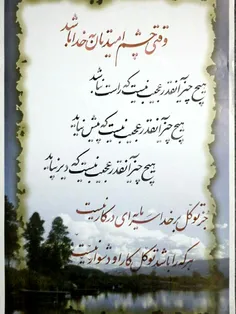 وقتی چشم امیدتان به خدا باشد
هیچ چیز آنقدر عجیب نیست که راست نباشد
هیچ چیز آنقدر عجیب نیست که پیش نیاید
هیچ چیز آنقدر عجیب نیست که دیر نپاید
جز توکل بر خدا سرمایه ای در کار نیست
هر که را باشد توکل کار او دشوار نیست